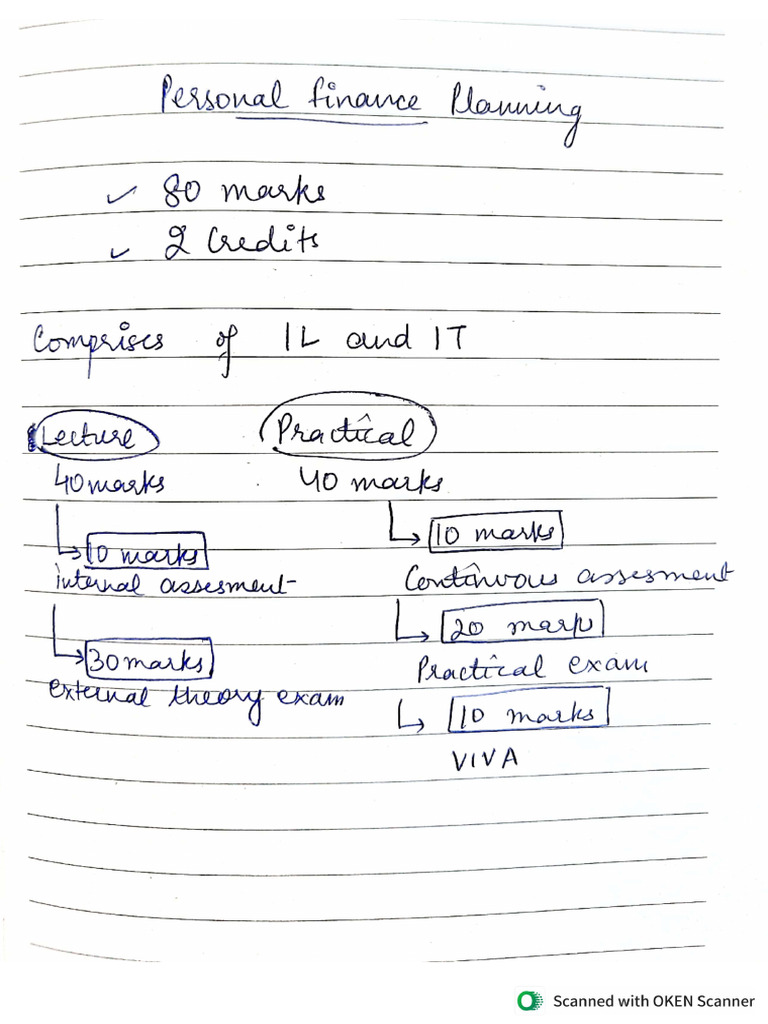 Personal finance Planning
80 marks
2 Credits
Comprises of 1L and 1T
Lecture
40 marks
10 marks
internal assesment
30 marks
external theory exam
Practical
40 marks
10 marks
Continuous assesment
20 marks
Practical exam
10 marks
VIVA
Scanned with OKEN Scanner